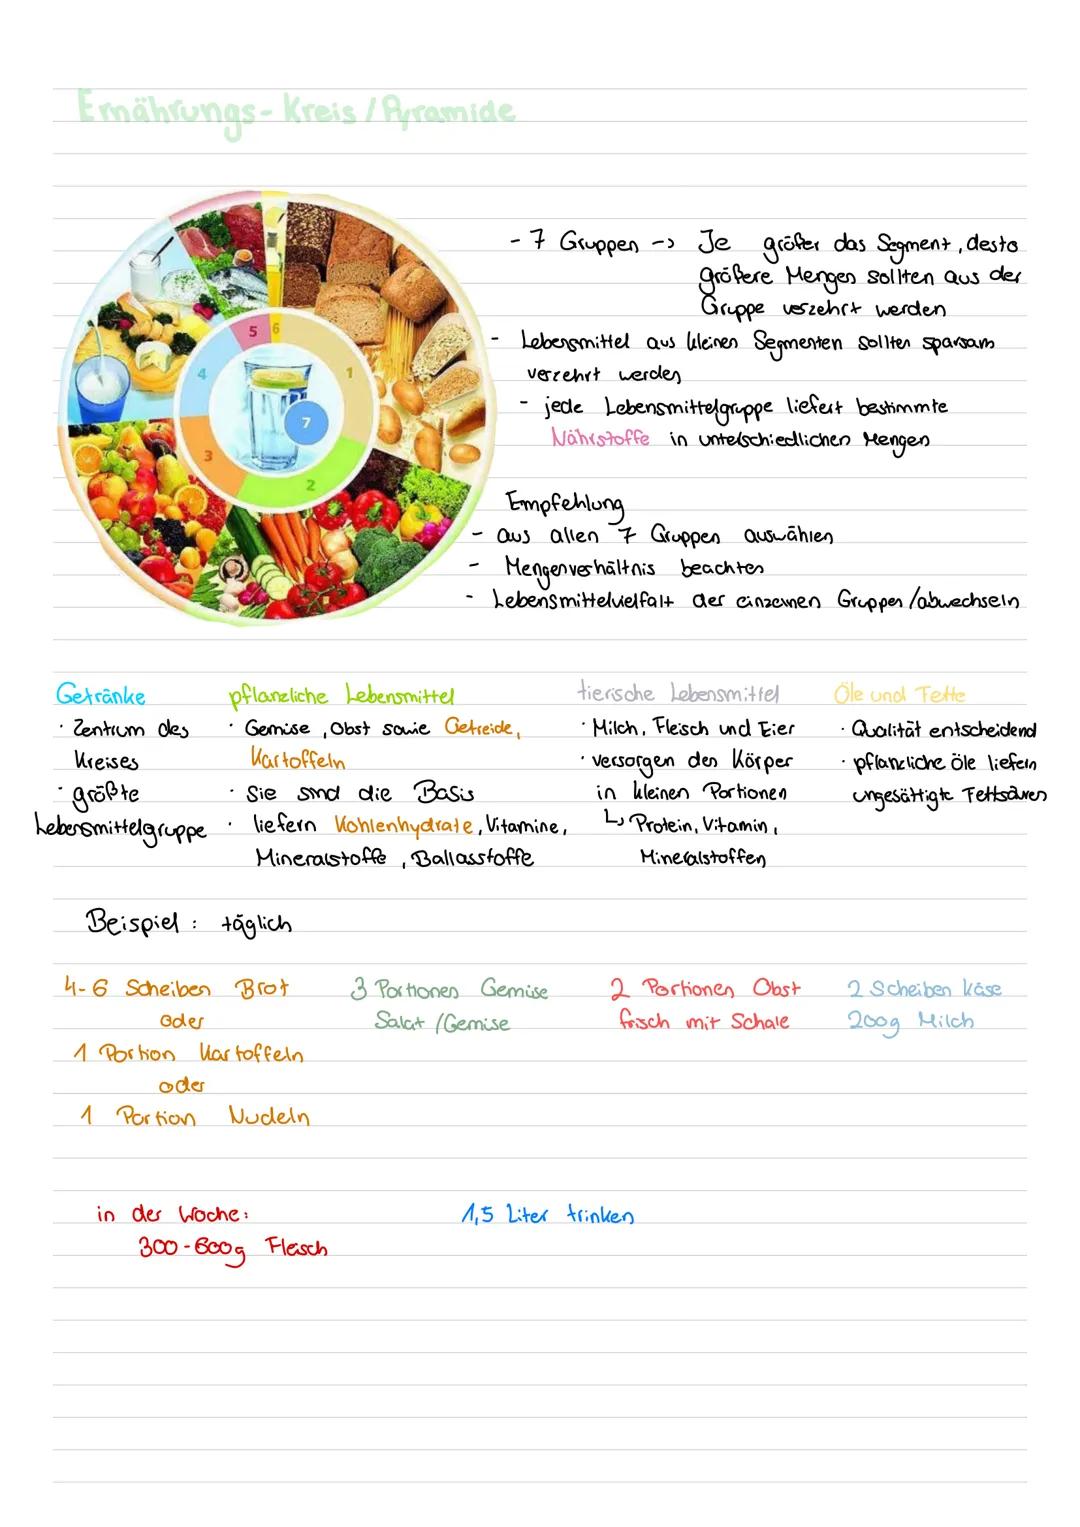 Ernährungs-Kreis / Pyramide
- 7 Gruppen -> Je größer das Segment, desto
größere Mengen sollten aus der
Gruppe verzehrt werden
- Lebensmittel aus kleinen Segmenten sollten sparsam
verzehrt werden
- jede Lebensmittelgruppe liefert bestimmte
Nährstoffe in unterschiedlichen Mengen
5 6
4 1
7
3
2
Empfehlung
- aus allen 7 Gruppen auswählen
- Mengenverhältnis beachten
- Lebensmittelvielfalt der einzelnen Gruppen / abwechseln
Getränke
· Zentrum des
Kreises
· größte
Lebensmittelgruppe
pflanzliche Lebensmittel
· Gemüse, Obst sowie Getreide,
Kartoffeln
· Sie sind die Basis
· liefern Kohlenhydrate, Vitamine,
Mineralstoffe, Ballasstoffe
tierische Lebensmittel
· Milch, Fleisch und Eier
· versorgen den Körper
in kleinen Portionen
↳ Protein, Vitamin,
Mineralstoffen
Öle und Fette
· Qualität entscheidend
· pflanzliche Öle liefern
ungesättigte Fettsäuren
Beispiel: täglich
4-6 Scheiben Brot
oder
1 Portion Kartoffeln
oder
1 Portion Nudeln
3 Portionen Gemüse
Salat / Gemüse
2 Portionen Obst
frisch mit Schale
2 Scheiben Käse
200g Milch
in der Woche:
300-600g Fleisch
1,5 Liter trinken